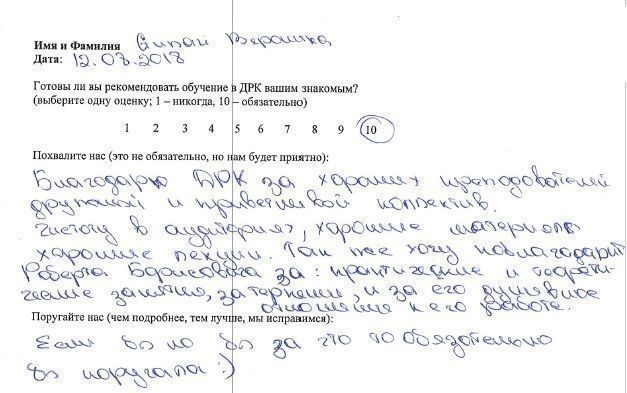 Имя и Фамилия Сипан Верашка
Дата: 12.08.2018
Готовы ли вы рекомендовать обучение в ДРК вашим знакомым?
(выберите одну оценку; 1 – никогда, 10 – обязательно)
1 2 3 4 5 6 7 8 9 10
Похвалите нас (это не обязательно, но нам будет приятно):
Благодарю ДРК за хороших преподователей
друпаний и приветливой коллектив.
Чистоту в аудиториях, хорошие материалы
хорошие лекции. Так же хочу поблагодарит
Роберта Борисовича за: практические и теорети-
ческие занятия, за терпении, и за его душевное
отношение к его работе.
Поругайте нас (чем подробнее, тем лучше, мы исправимся):
Если бы но бы за что то обязательно
бы поругала :)